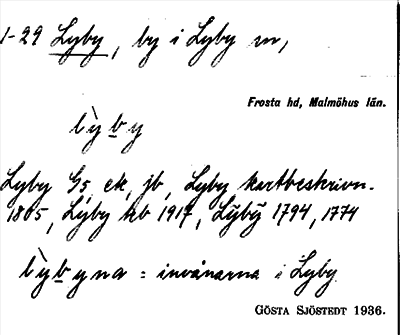 1-29 Lyby, by i Lyby sn,
Frosta hd, Malmöhus län.
lỳby
Lyby Gs, ek, jb, Lyby kartbeskrivn.
1805, Lyby kb 1917, Lÿbÿ 1794, 1774
lỳbyna = invånarna i Lyby.
GÖSTA SJÖSTEDT 1936.